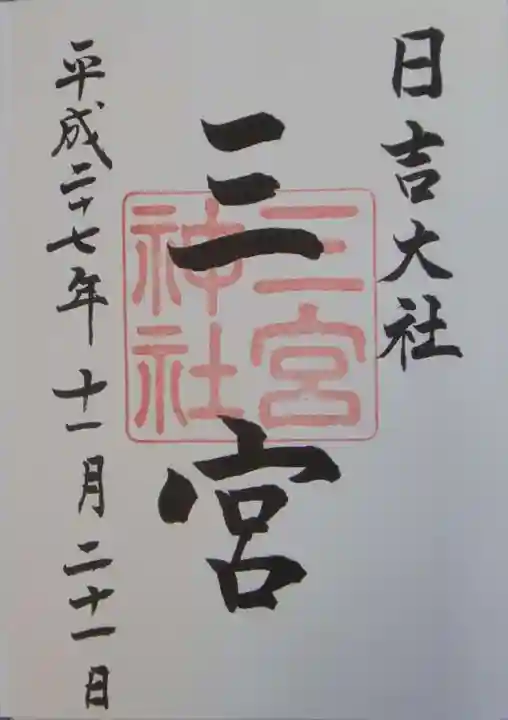 日吉大社
三宮
三宮
神社
平成二十七年十一月二十一日